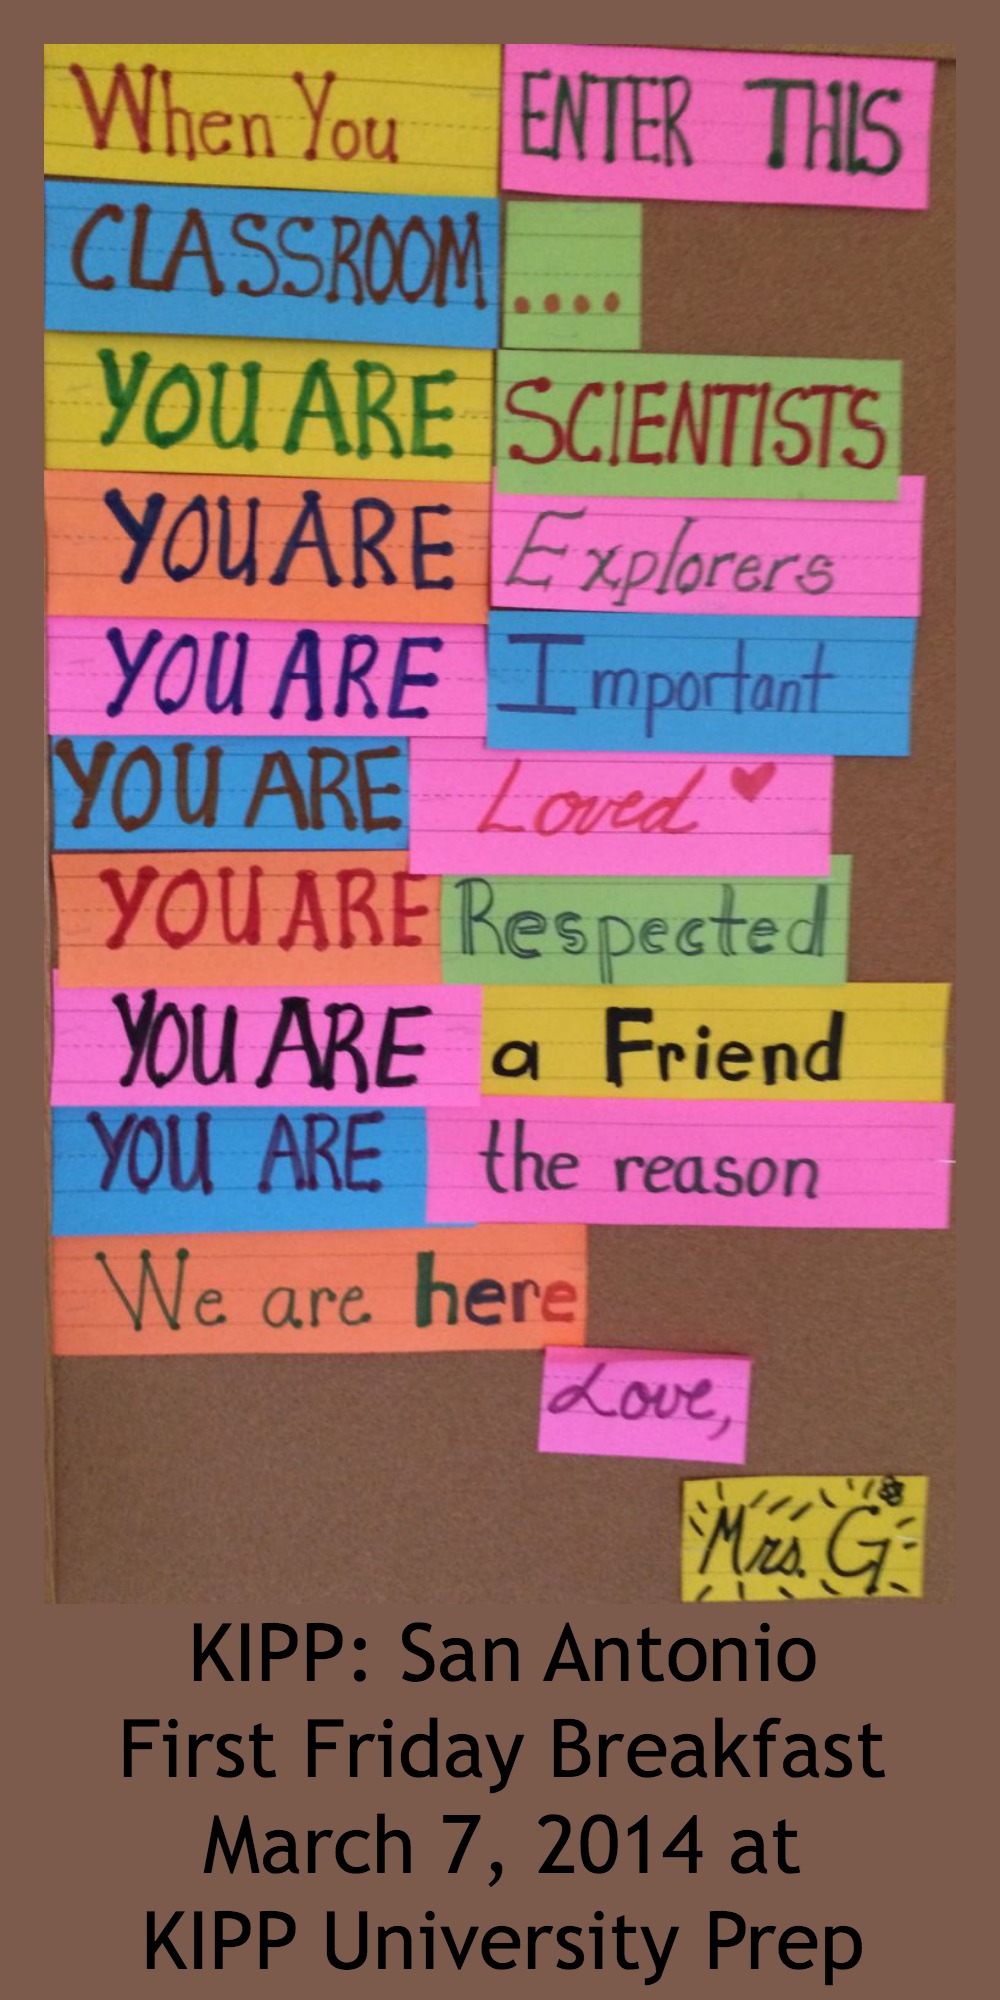 When You ENTER THIS
CLASSROOM ....
YOU ARE SCIENTISTS
YOU ARE Explorers
YOU ARE Important
YOU ARE Loved
YOU ARE Respected
YOU ARE a Friend
YOU ARE the reason
We are here
Love,
Mrs. G
KIPP: San Antonio
First Friday Breakfast
March 7, 2014 at
KIPP University Prep